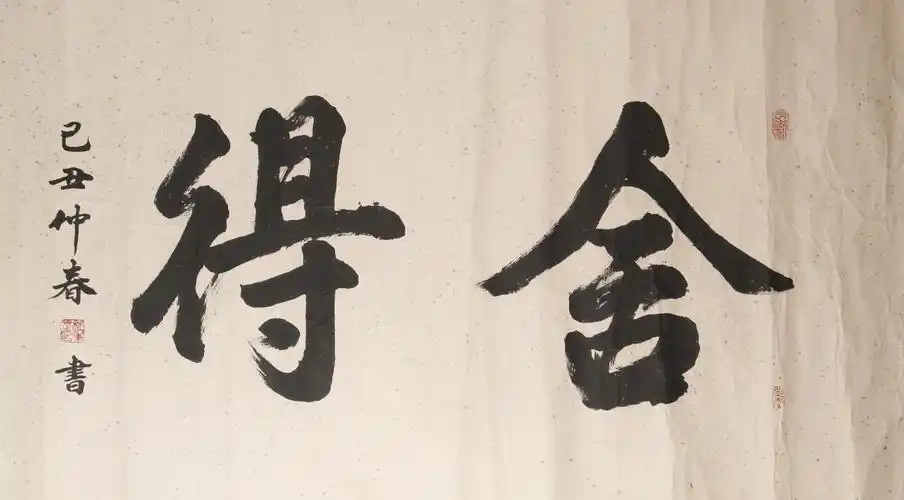 舍得
己丑仲春
書